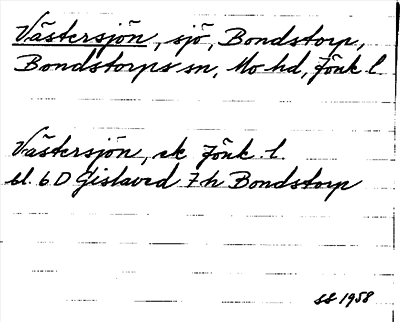 Västersjön, sjö, Bondstorp,
Bondstorps sn, Mo hd, Jönk l.
Västersjön, ek Jönk l.
bl. 6 D Gislaved 7 h Bondstorp
SS 1958